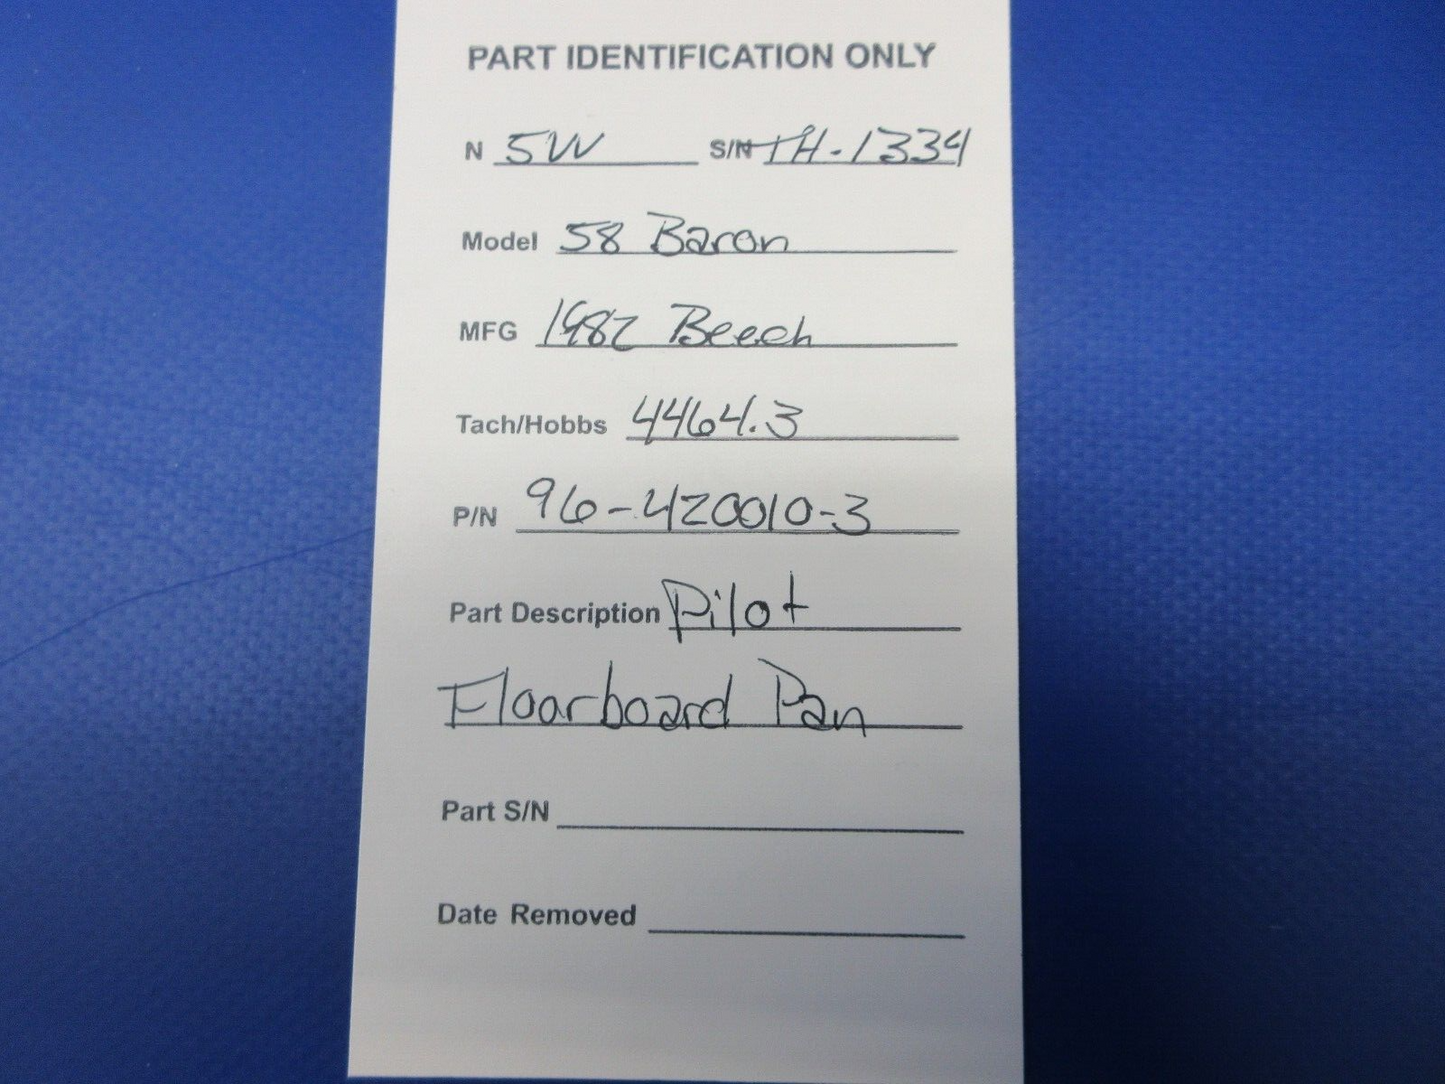 PART IDENTIFICATION ONLY
N 5W S/N TH-1334
Model 58 Baron
MFG 1982 Beech
Tach/Hobbs 4464.3
P/N 96-420010-3
Part Description Pilot
Floorboard Pan
Part S/N
Date Removed